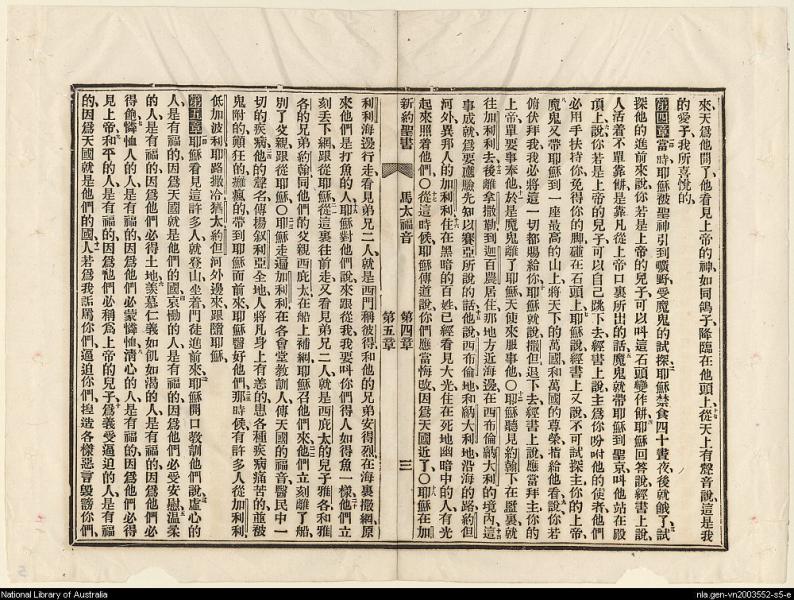 來、天爲他開了、他看見上帝的神、如同鴿子降臨在他頭上、從天上有聲音說、這是我
的愛子、我所喜悅的、
第四章 當時耶穌被聖神引到曠野、受魔鬼的試探、耶穌禁食四十晝夜、後就餓了、試
探他的進前來說、你若是上帝的兒子、可以叫這石頭變作餅、耶穌回答說、經書上說、
人活着不單靠餅、是靠凡從上帝口裏所出的話、魔鬼就帶耶穌到聖京、叫他站在殿
頂上、說、你若是上帝的兒子、可以自己跳下去、經書上說、主爲你吩咐他的使者、他們
必用手扶持你、免得你的脚碰在石頭上、耶穌說、經書上又說、不可試探主你的上帝、
魔鬼又帶耶穌到一座最高的山上、將天下的萬國和萬國的尊榮、指給他看、說、你若
俯伏拜我、我必將這一切都賜給你、耶穌就說、撒但、退下去、經書上說、應當拜主你的
上帝、單要事奉他、於是魔鬼離了耶穌、天使來服事他〇耶穌聽見約翰下在監裏、就
往加利利去、後離拿撒勒、到迦百農居住、那地方近海邊、在西布倫納大利的境內、這
事成就、爲要應驗先知以賽亞所說的話、他說、西布倫地和納大利地、沿海的路、約但
河外、異邦人的加利利、住在黑暗的百姓、已經看見大光、住在死地幽暗中的人、有光
起來照着他們〇從這時候、耶穌傳道說、你們應當悔改、因爲天國近了〇耶穌在加
新約聖書 馬太福音 第四章 第五章 三
利利海邊行走、看見弟兄二人、就是西門稱彼得、和他的兄弟安得烈、在海裏撒網、原
來他們是打魚的人、耶穌對他們說、來跟從我、我要叫你們得人如得魚一樣、他們立
刻丟下網、跟從耶穌、從這裏往前走、又看見弟兄二人、就是西庇太的兒子雅各、和雅
各的兄弟約翰、同他們的父親西庇太在船上補網、耶穌召他們來、他們立刻離了船、
別了父親、跟從耶穌〇耶穌走遍加利利、在各會堂教訓人、傳天國的福音、醫民中一
切的疾病、他的聲名傳揚叙利亞全地、人將凡身上有恙的、患各種疾病痛苦的、並被
鬼附的、顚狂的、癱瘋的、帶到耶穌面前來、耶穌醫好他們、那時候有許多人從加利利、
低加波利、耶路撒冷、猶太、約但河外邊來、跟隨耶穌、
第五章 耶穌看見這許多人、就登山、坐着、門徒進前來、耶穌開口教訓他們說、虛心的
人、是有福的、因爲天國就是他們的國、哀慟的人、是有福的、因爲他們必受安慰、溫柔
的人、是有福的、因爲他們必得土地、羨慕仁義如飢如渴的人、是有福的、因爲他們必
得飽、憐恤人的人、是有福的、因爲他們必蒙憐恤、清心的人、是有福的、因爲他們必得
見上帝、和平的人、是有福的、因爲他們必稱爲上帝的兒子、爲義受逼迫的人、是有福
的、因爲天國就是他們的國、人若爲我詬厲你們、逼迫你們、揑造各樣惡言毀謗你們、
National Library of Australia
nla.gen-vn2003552-s5-e